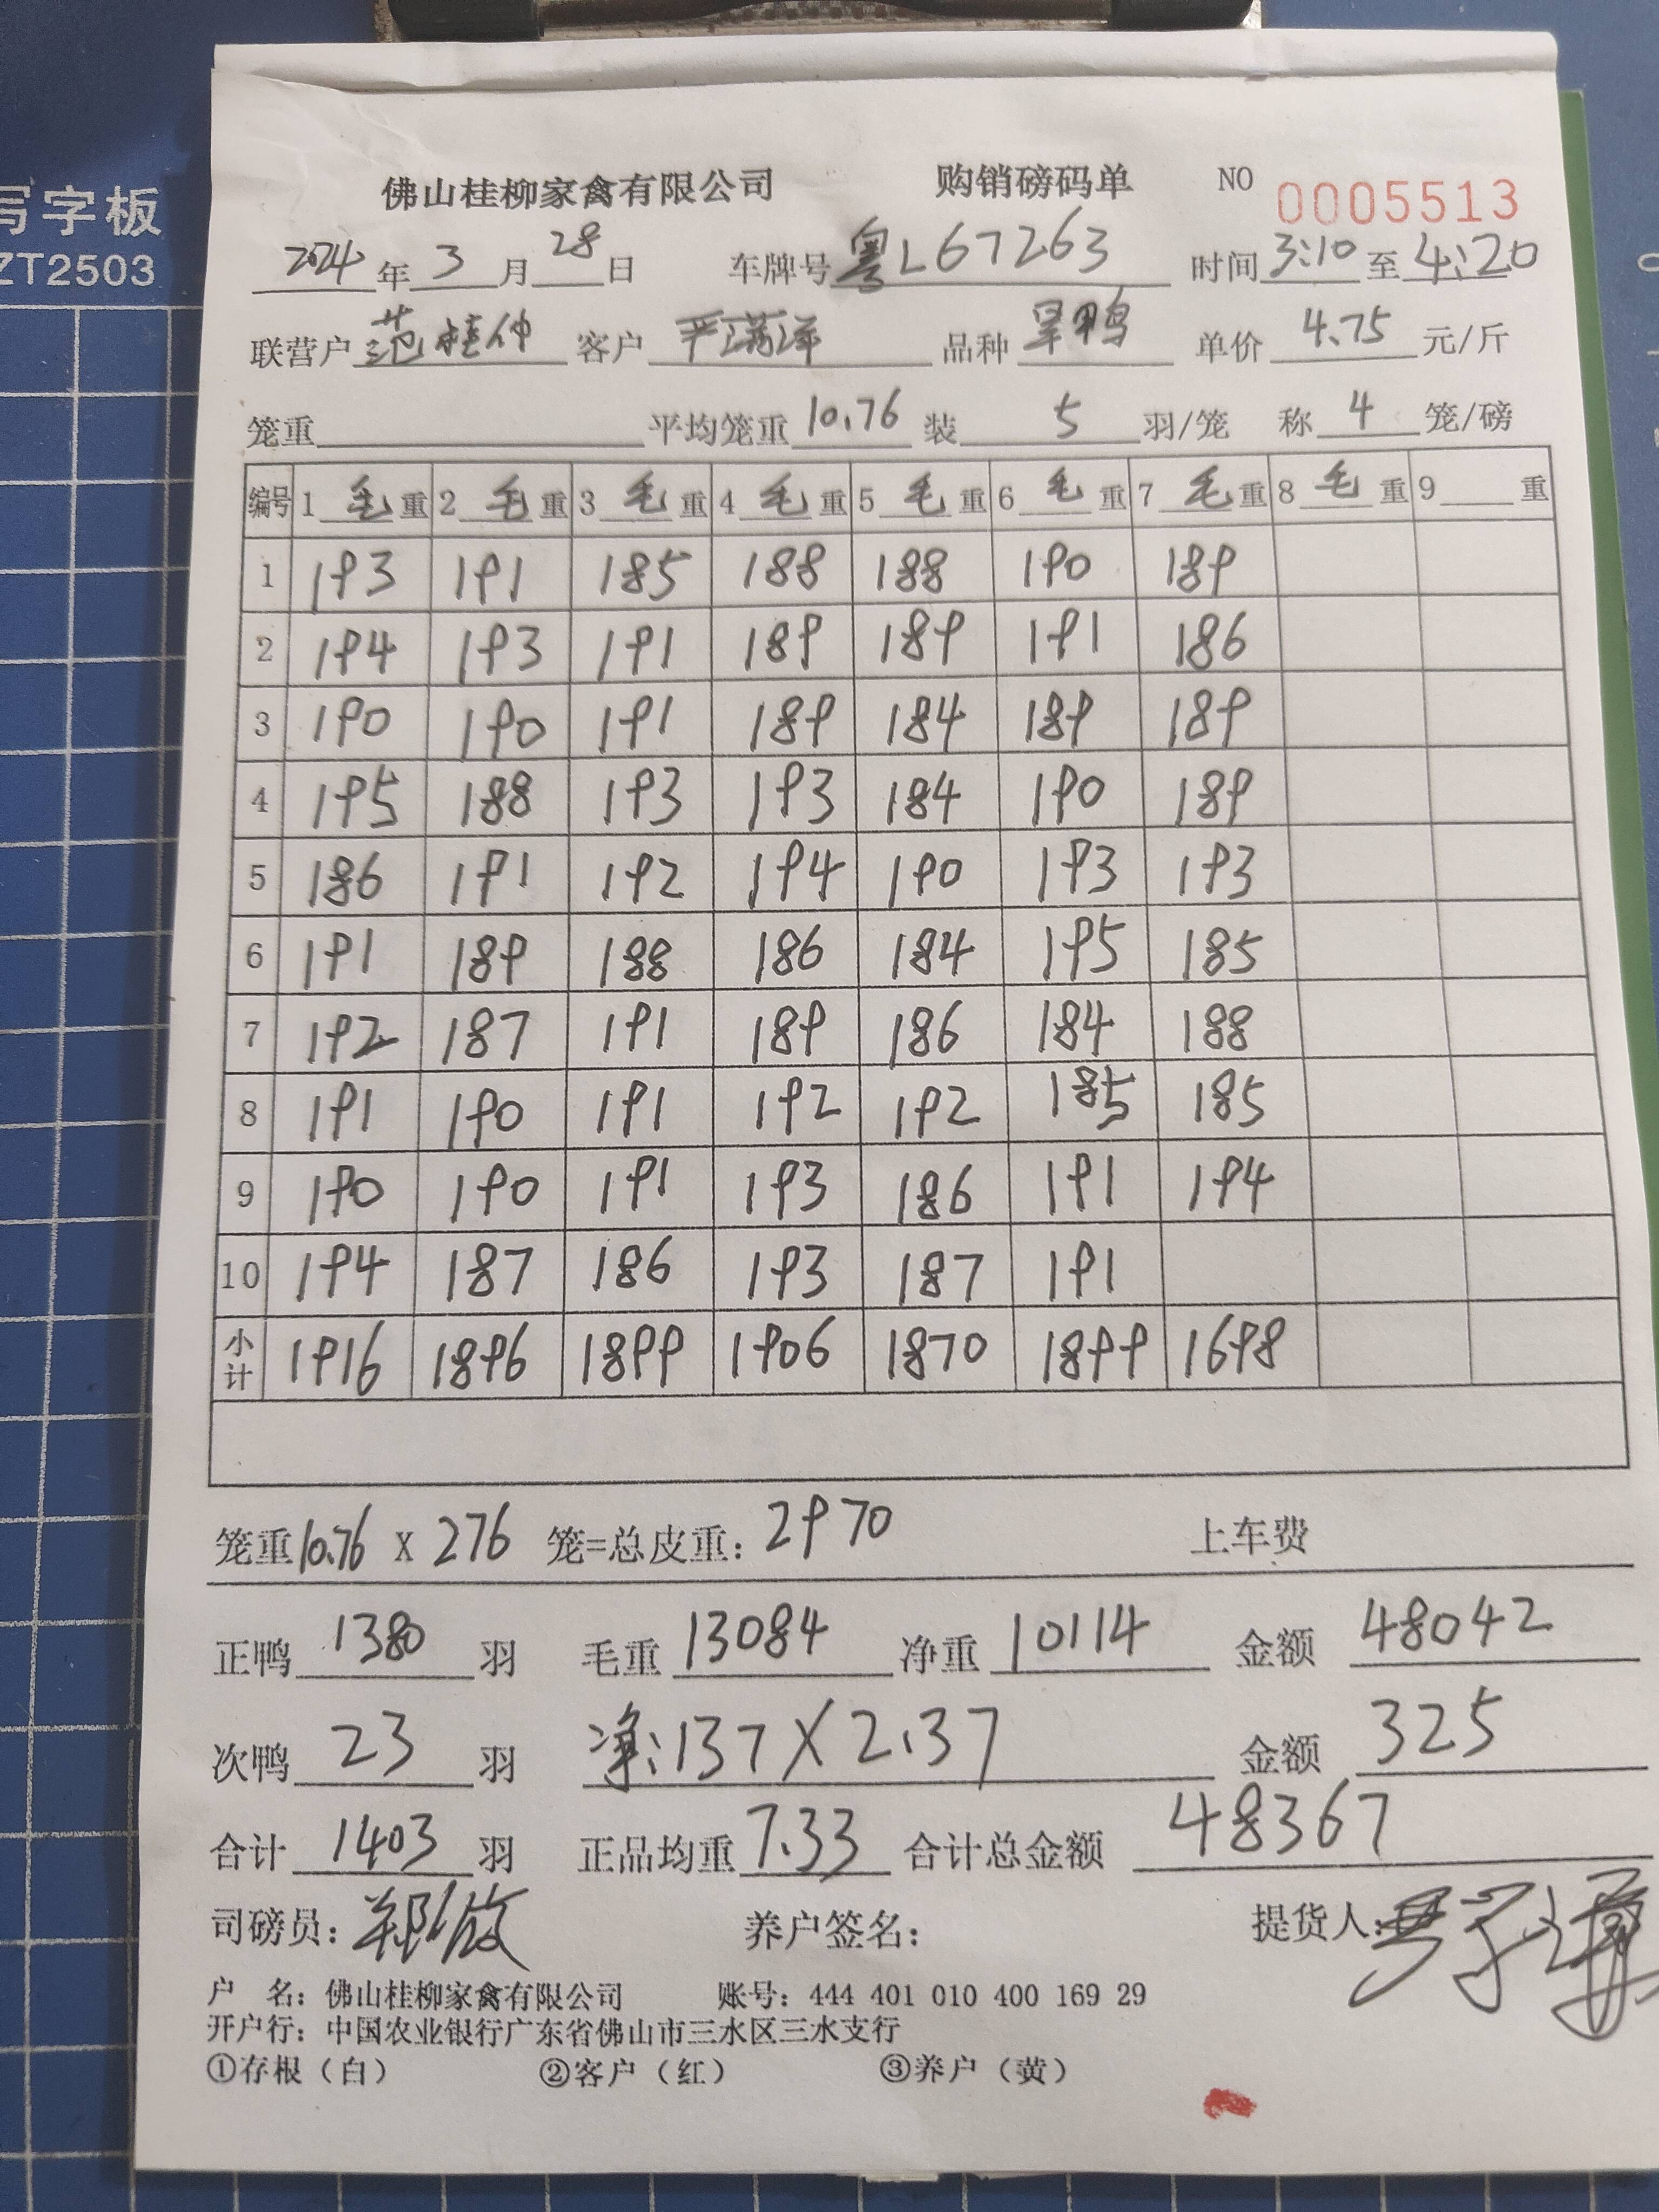 写字板
ZT2503
佛山桂柳家禽有限公司 购销磅码单 NO 0005513
2024 年 3 月 28 日 车牌号 粤L67263 时间 3:10 至 4:20
联营户 范桂仲 客户 严满洋 品种 旱鸭 单价 4.75 元/斤
笼重 平均笼重 10.76 装 5 羽/笼 称 4 笼/磅
编号 1 毛 重 2 毛 重 3 毛 重 4 毛 重 5 毛 重 6 毛 重 7 毛 重 8 毛 重 9 重
1 193 191 185 188 188 190 189
2 194 193 191 189 189 191 186
3 190 190 191 189 184 189 189
4 195 188 193 193 184 190 189
5 186 191 192 194 190 193 193
6 191 189 188 186 184 195 185
7 192 187 191 189 186 184 188
8 191 190 191 192 192 185 185
9 190 190 191 193 186 191 194
10 194 187 186 193 187 191
小计 1916 1896 1899 1906 1870 1899 1698
笼重 10.76 X 276 笼=总皮重: 2970 上车费
正鸭 1380 羽 毛重 13084 净重 10114 金额 48042
次鸭 23 羽 净: 137 X 2.37 金额 325
合计 1403 羽 正品均重 7.33 合计总金额 48367
司磅员: 养户签名: 提货人:
户 名: 佛山桂柳家禽有限公司 账号: 444 401 010 400 169 29
开户行: 中国农业银行广东省佛山市三水区三水支行
①存根（白） ②客户（红） ③养户（黄）